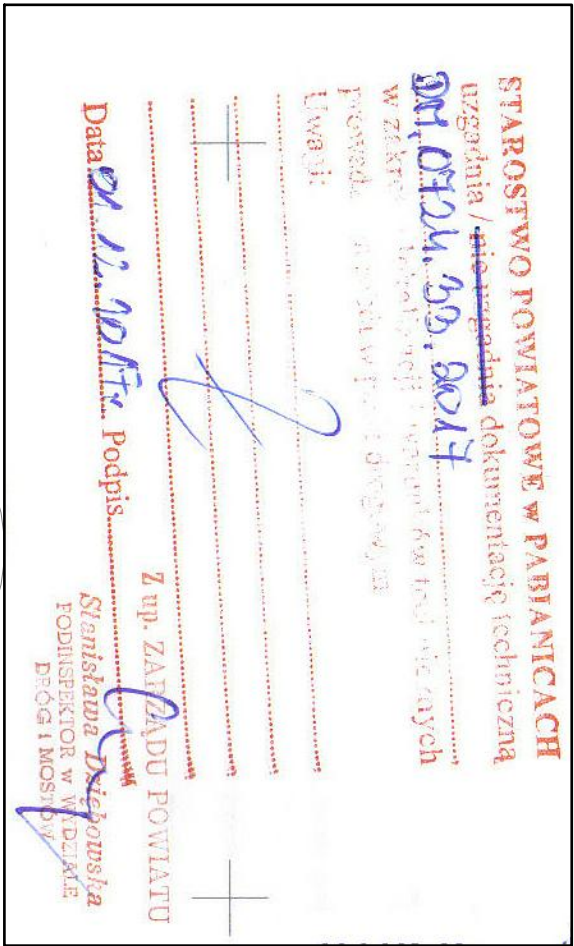 STAROSTWO POWIATOWE w PABIANICACH
uzgadnia / nie uzgadnia dokumentację techniczną
DM.0724.39.2017
w zakr
Uwagi:
Data 01.12.2017r. Podpis
Z up. ZARZĄDU POWIATU
Stanisława Dziębowska
PODINSPEKTOR w WYDZIALE
DRÓG i MOSTÓW